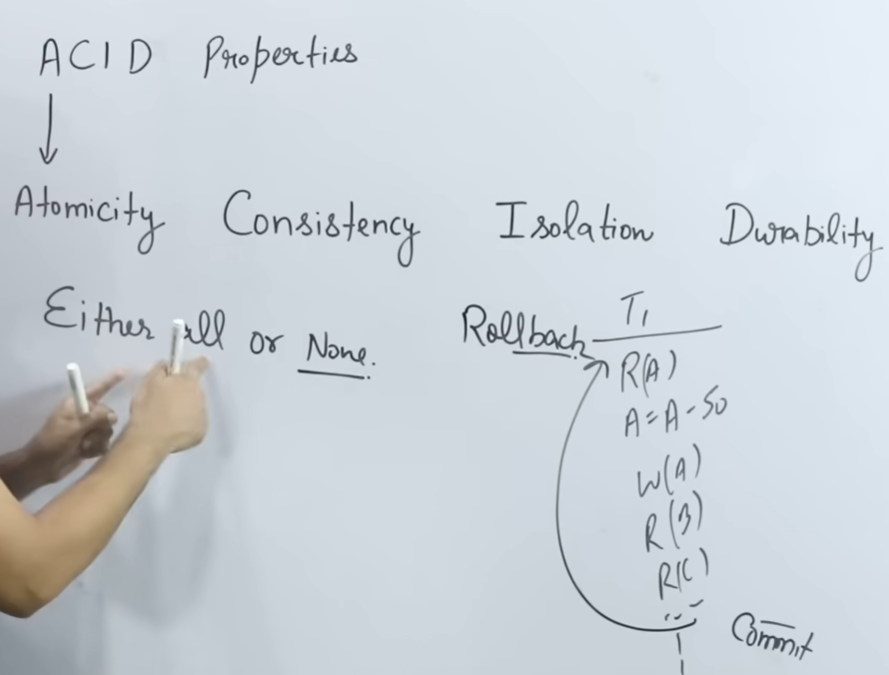 ACID Properties
Atomicity Consistency Isolation Durability
Either all or None.
Rollback
T1
R(A)
A=A-50
W(A)
R(B)
R(C)
Commit